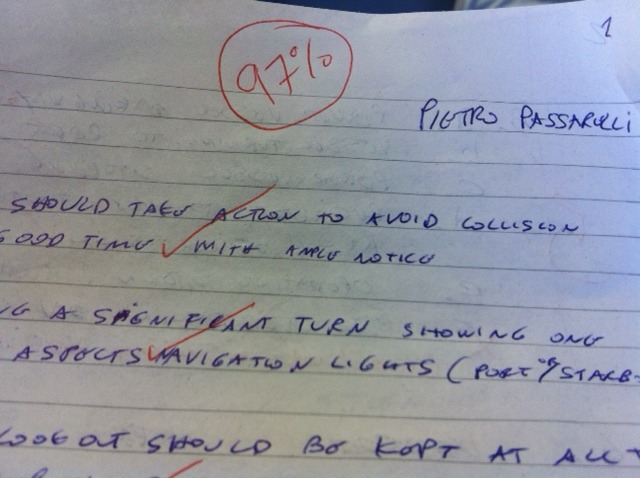 1
97%
PIETRO PASSARELLI
SHOULD TAKE ACTION TO AVOID COLLISION
GOOD TIME WITH AMPLE NOTICE
NG A SIGNIFICANT TURN SHOWING ONE
ASPECTS NAVIGATION LIGHTS (PORT OR/STARB-
LOOKOUT SHOULD BE KEPT AT ALL T